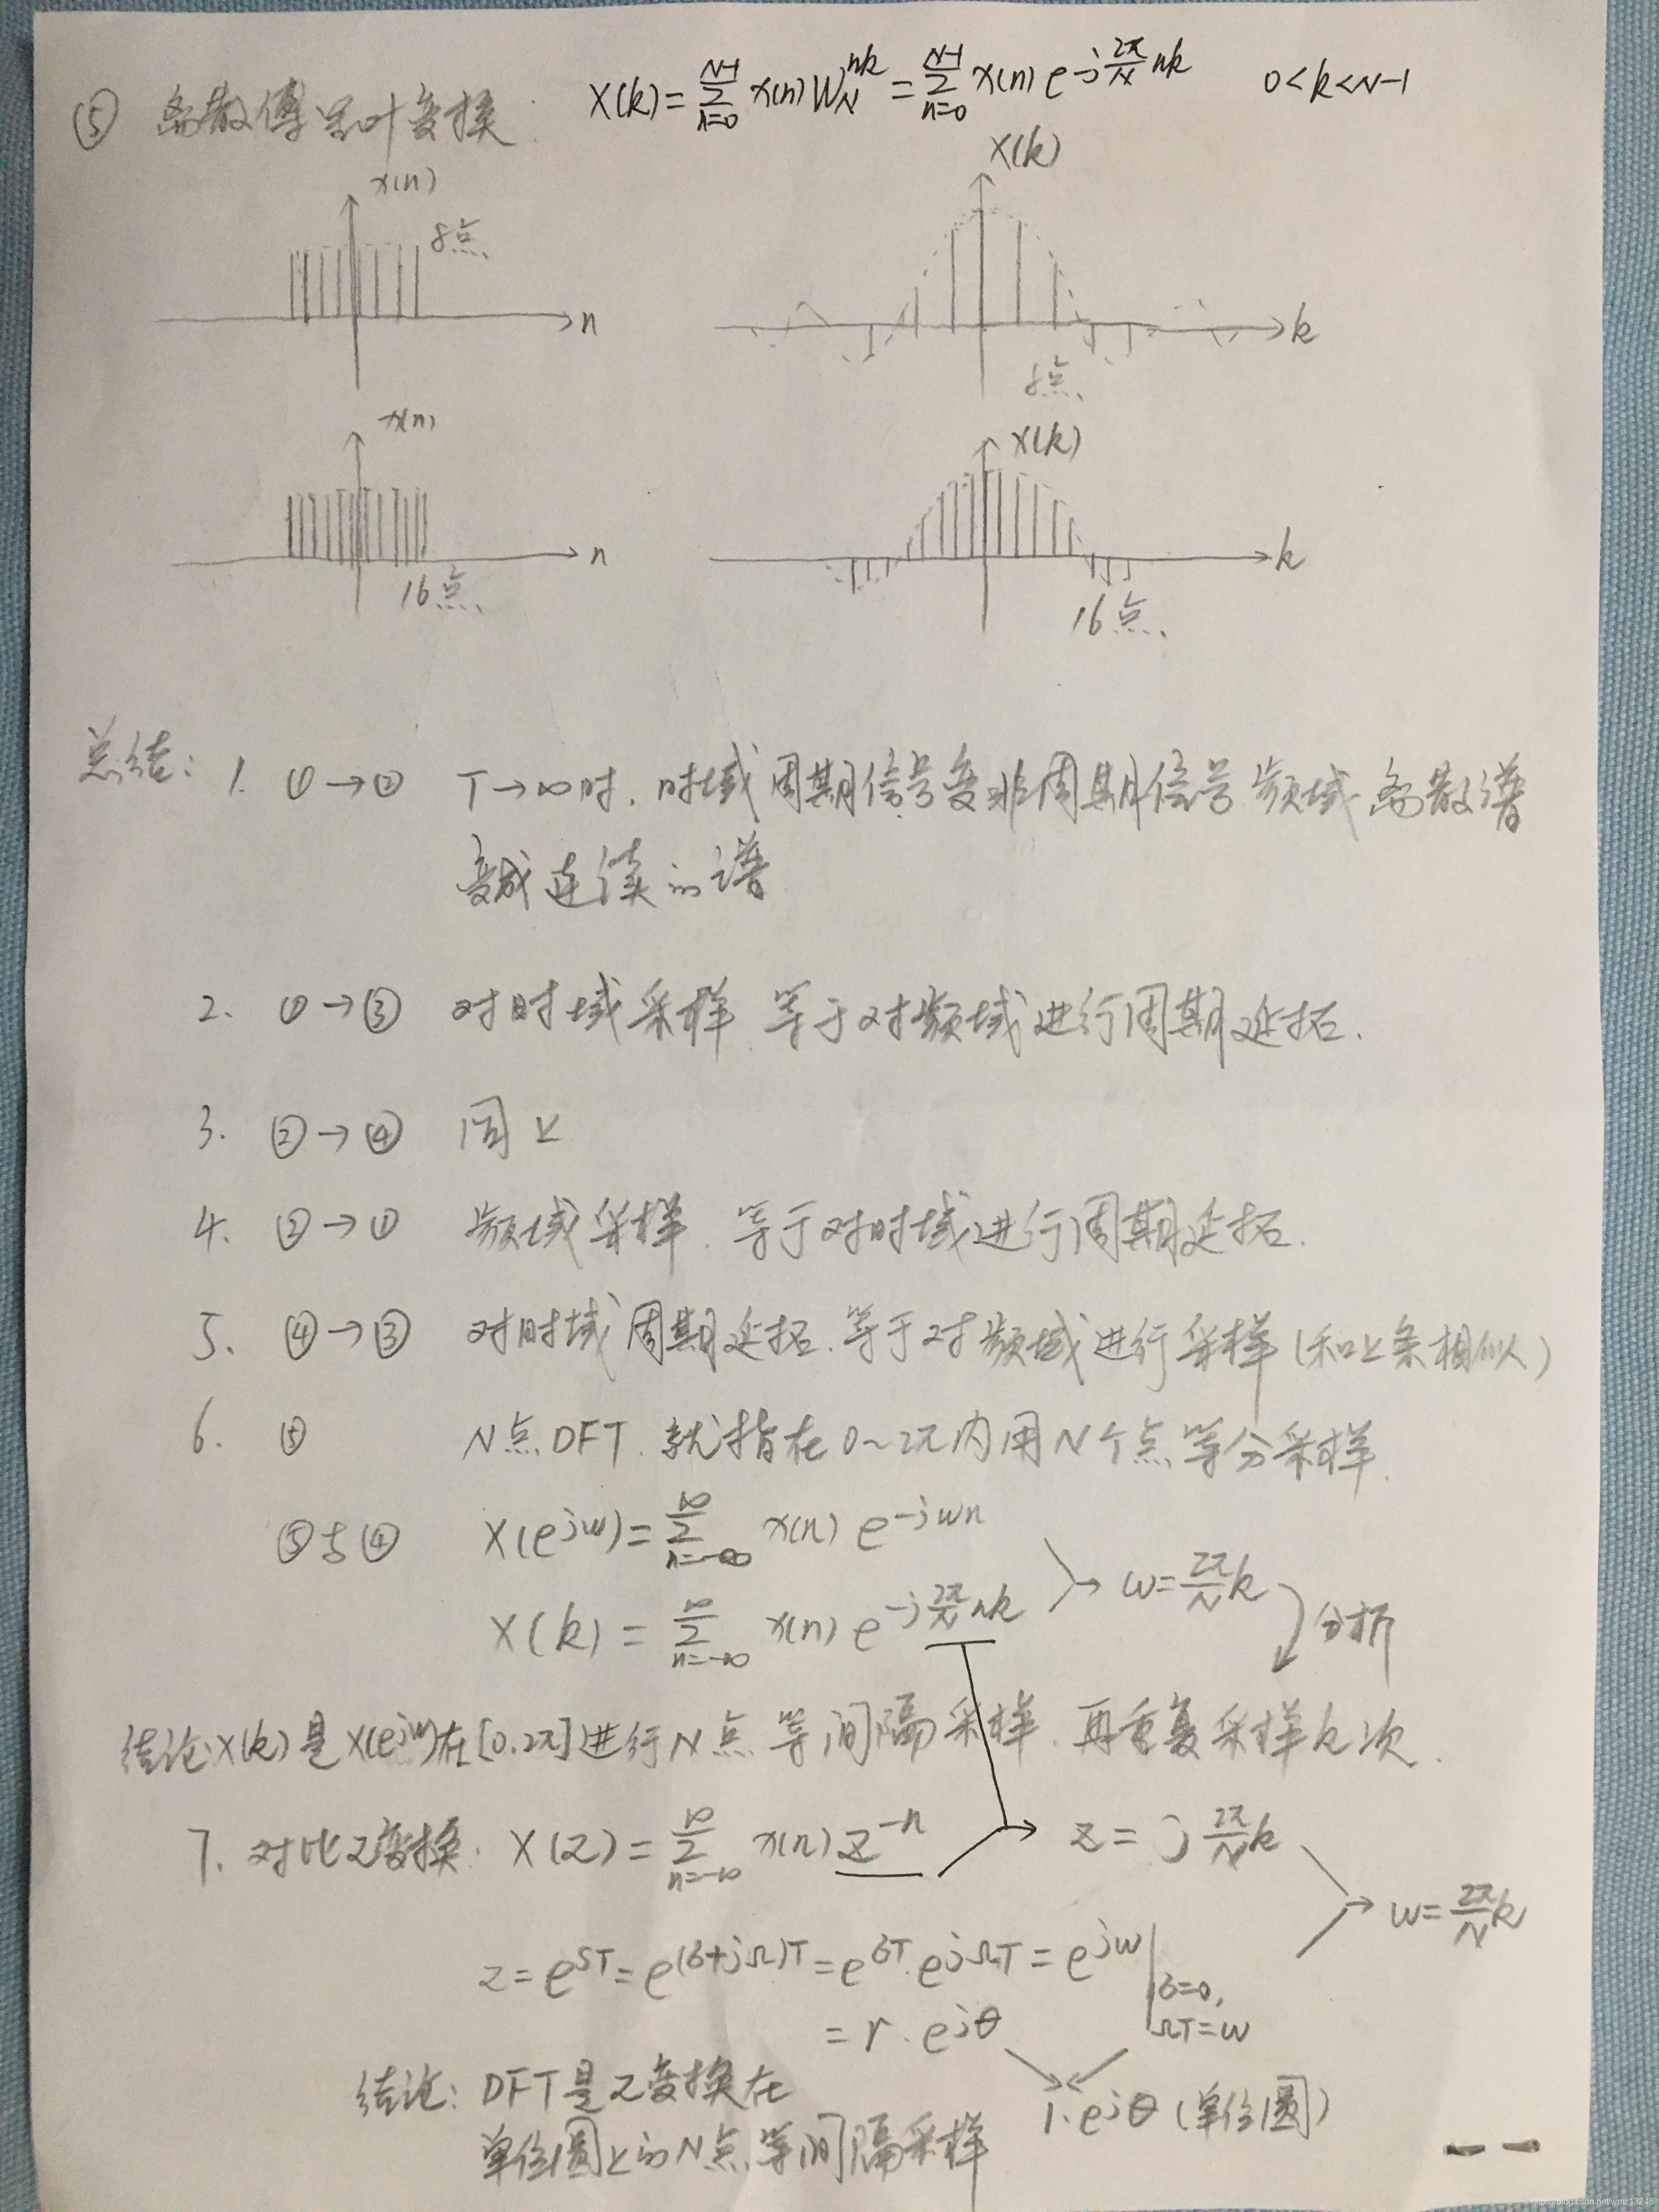 ⑤ 离散傅里叶变换: X(k)=∑_{n=0}^{N-1} x(n)W_N^{nk}=∑_{n=0}^{N-1} x(n)e^{-j\frac{2π}{N}nk} 0<k<N-1
x(n) X(k)
8点
n k
8点
x(n) X(k)
n k
16点 16点
总结: 1. ①→② T→∞时,时域周期信号变非周期信号 频域离散谱
变成连续的谱
2. ①→③ 对时域采样 等于对频域进行周期延拓.
3. ②→④ 同上
4. ②→① 频域采样.等于对时域进行周期延拓.
5. ④→③ 对时域周期延拓.等于对频域进行采样(和上条相似)
6. ⑤ N点DFT.就指在0~2π内用N个点等分采样.
⑤与④ X(e^{jω})=∑_{n=-∞}^{∞} x(n)e^{-jωn}
→ ω=\frac{2π}{N}k
X(k)=∑_{n=-∞}^{∞} x(n)e^{-j\frac{2π}{N}nk} 分析
结论:X(k)是X(e^{jω})在[0.2π]进行N点等间隔采样.再重复采样k次.
7. 对比Z变换: X(Z)=∑_{n=-∞}^{∞} x(n)Z^{-n} → z=j\frac{2π}{N}k
→ ω=\frac{2π}{N}k
z=e^{ST}=e^{(б+jΩ)T}=e^{бT}.e^{jΩT}=e^{jω}|б=0,
ΩT=ω
=r.e^{jθ}
结论: DFT是Z变换在
1.e^{jθ}(单位圆)
单位圆上的N点等间隔采样
https://blog.csdn.net/wmz13248